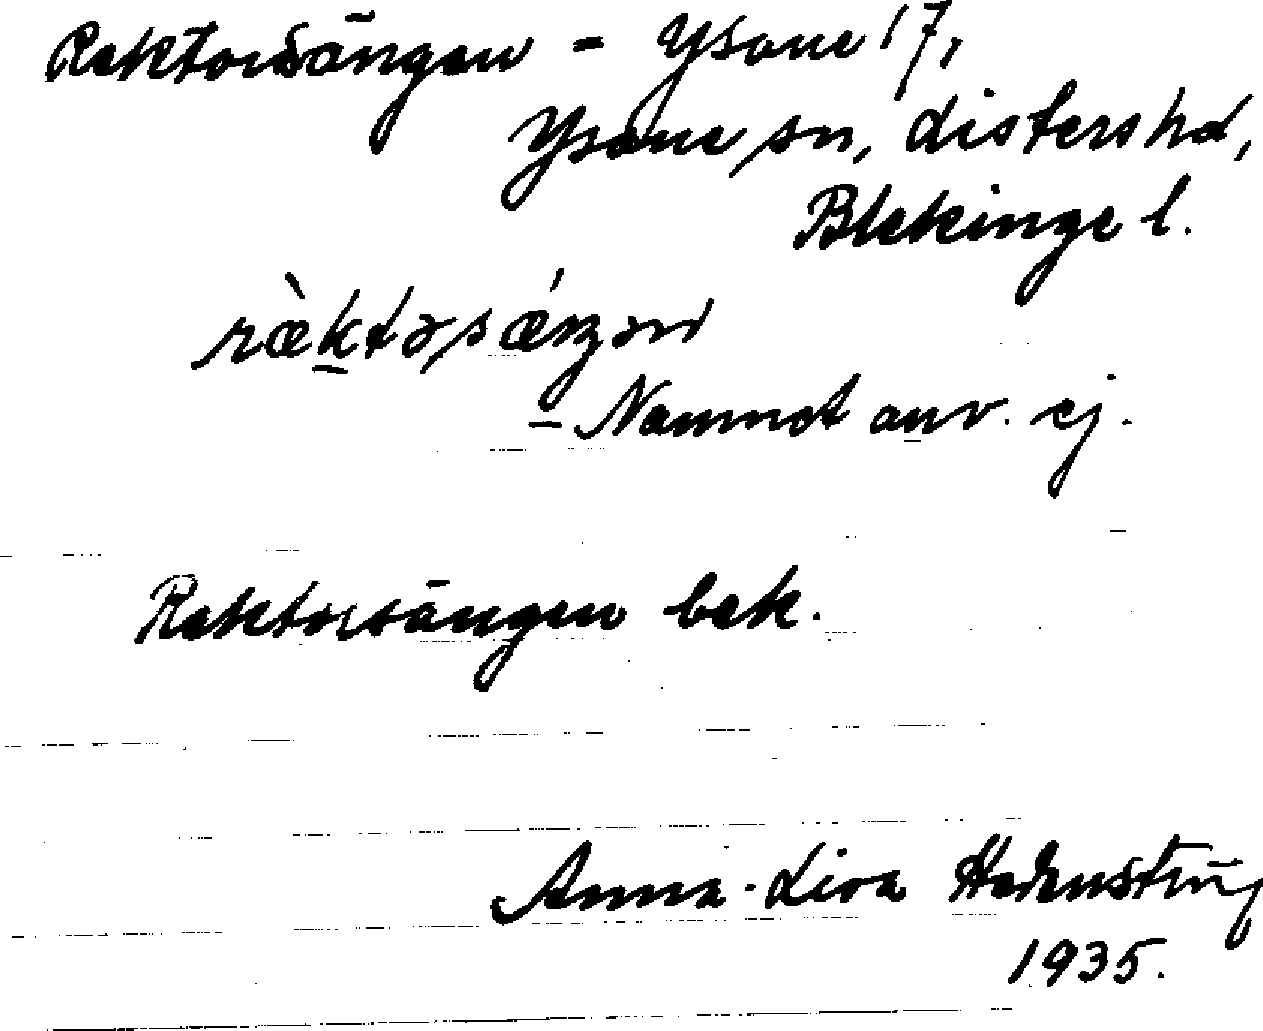 Rektorsängen - Ysane 17,
Ysane sn, Listers hd,
Blekinge l.
ræ̀ktəsǽŋən
- Namnet anv. ej.
Rektorsängen bek.
Anna-Lisa
1935.